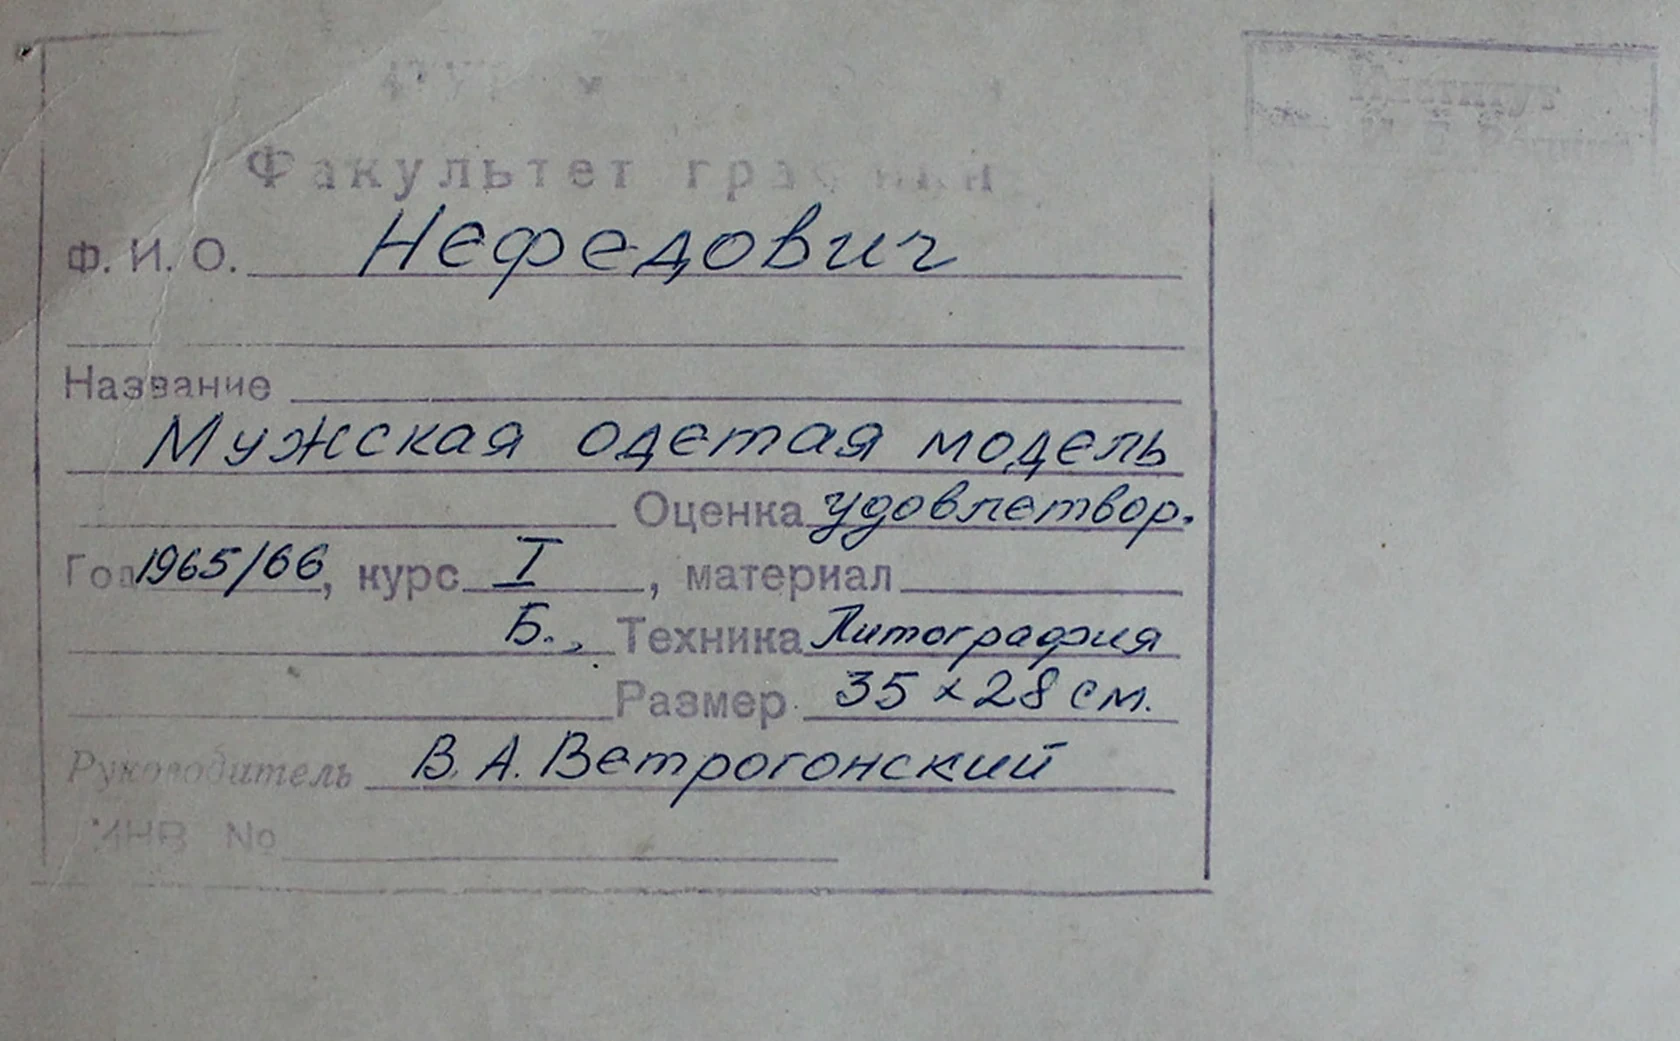 Институт
Факультет графики
Ф. И. О. Нефедович
Название
Мужская одетая модель
Оценка удовлетвор.
Год 1965/66, курс I, материал
Б., Техника Литография
Размер 35 x 28 см.
Руководитель В. А. Ветрогонский
ИНВ №